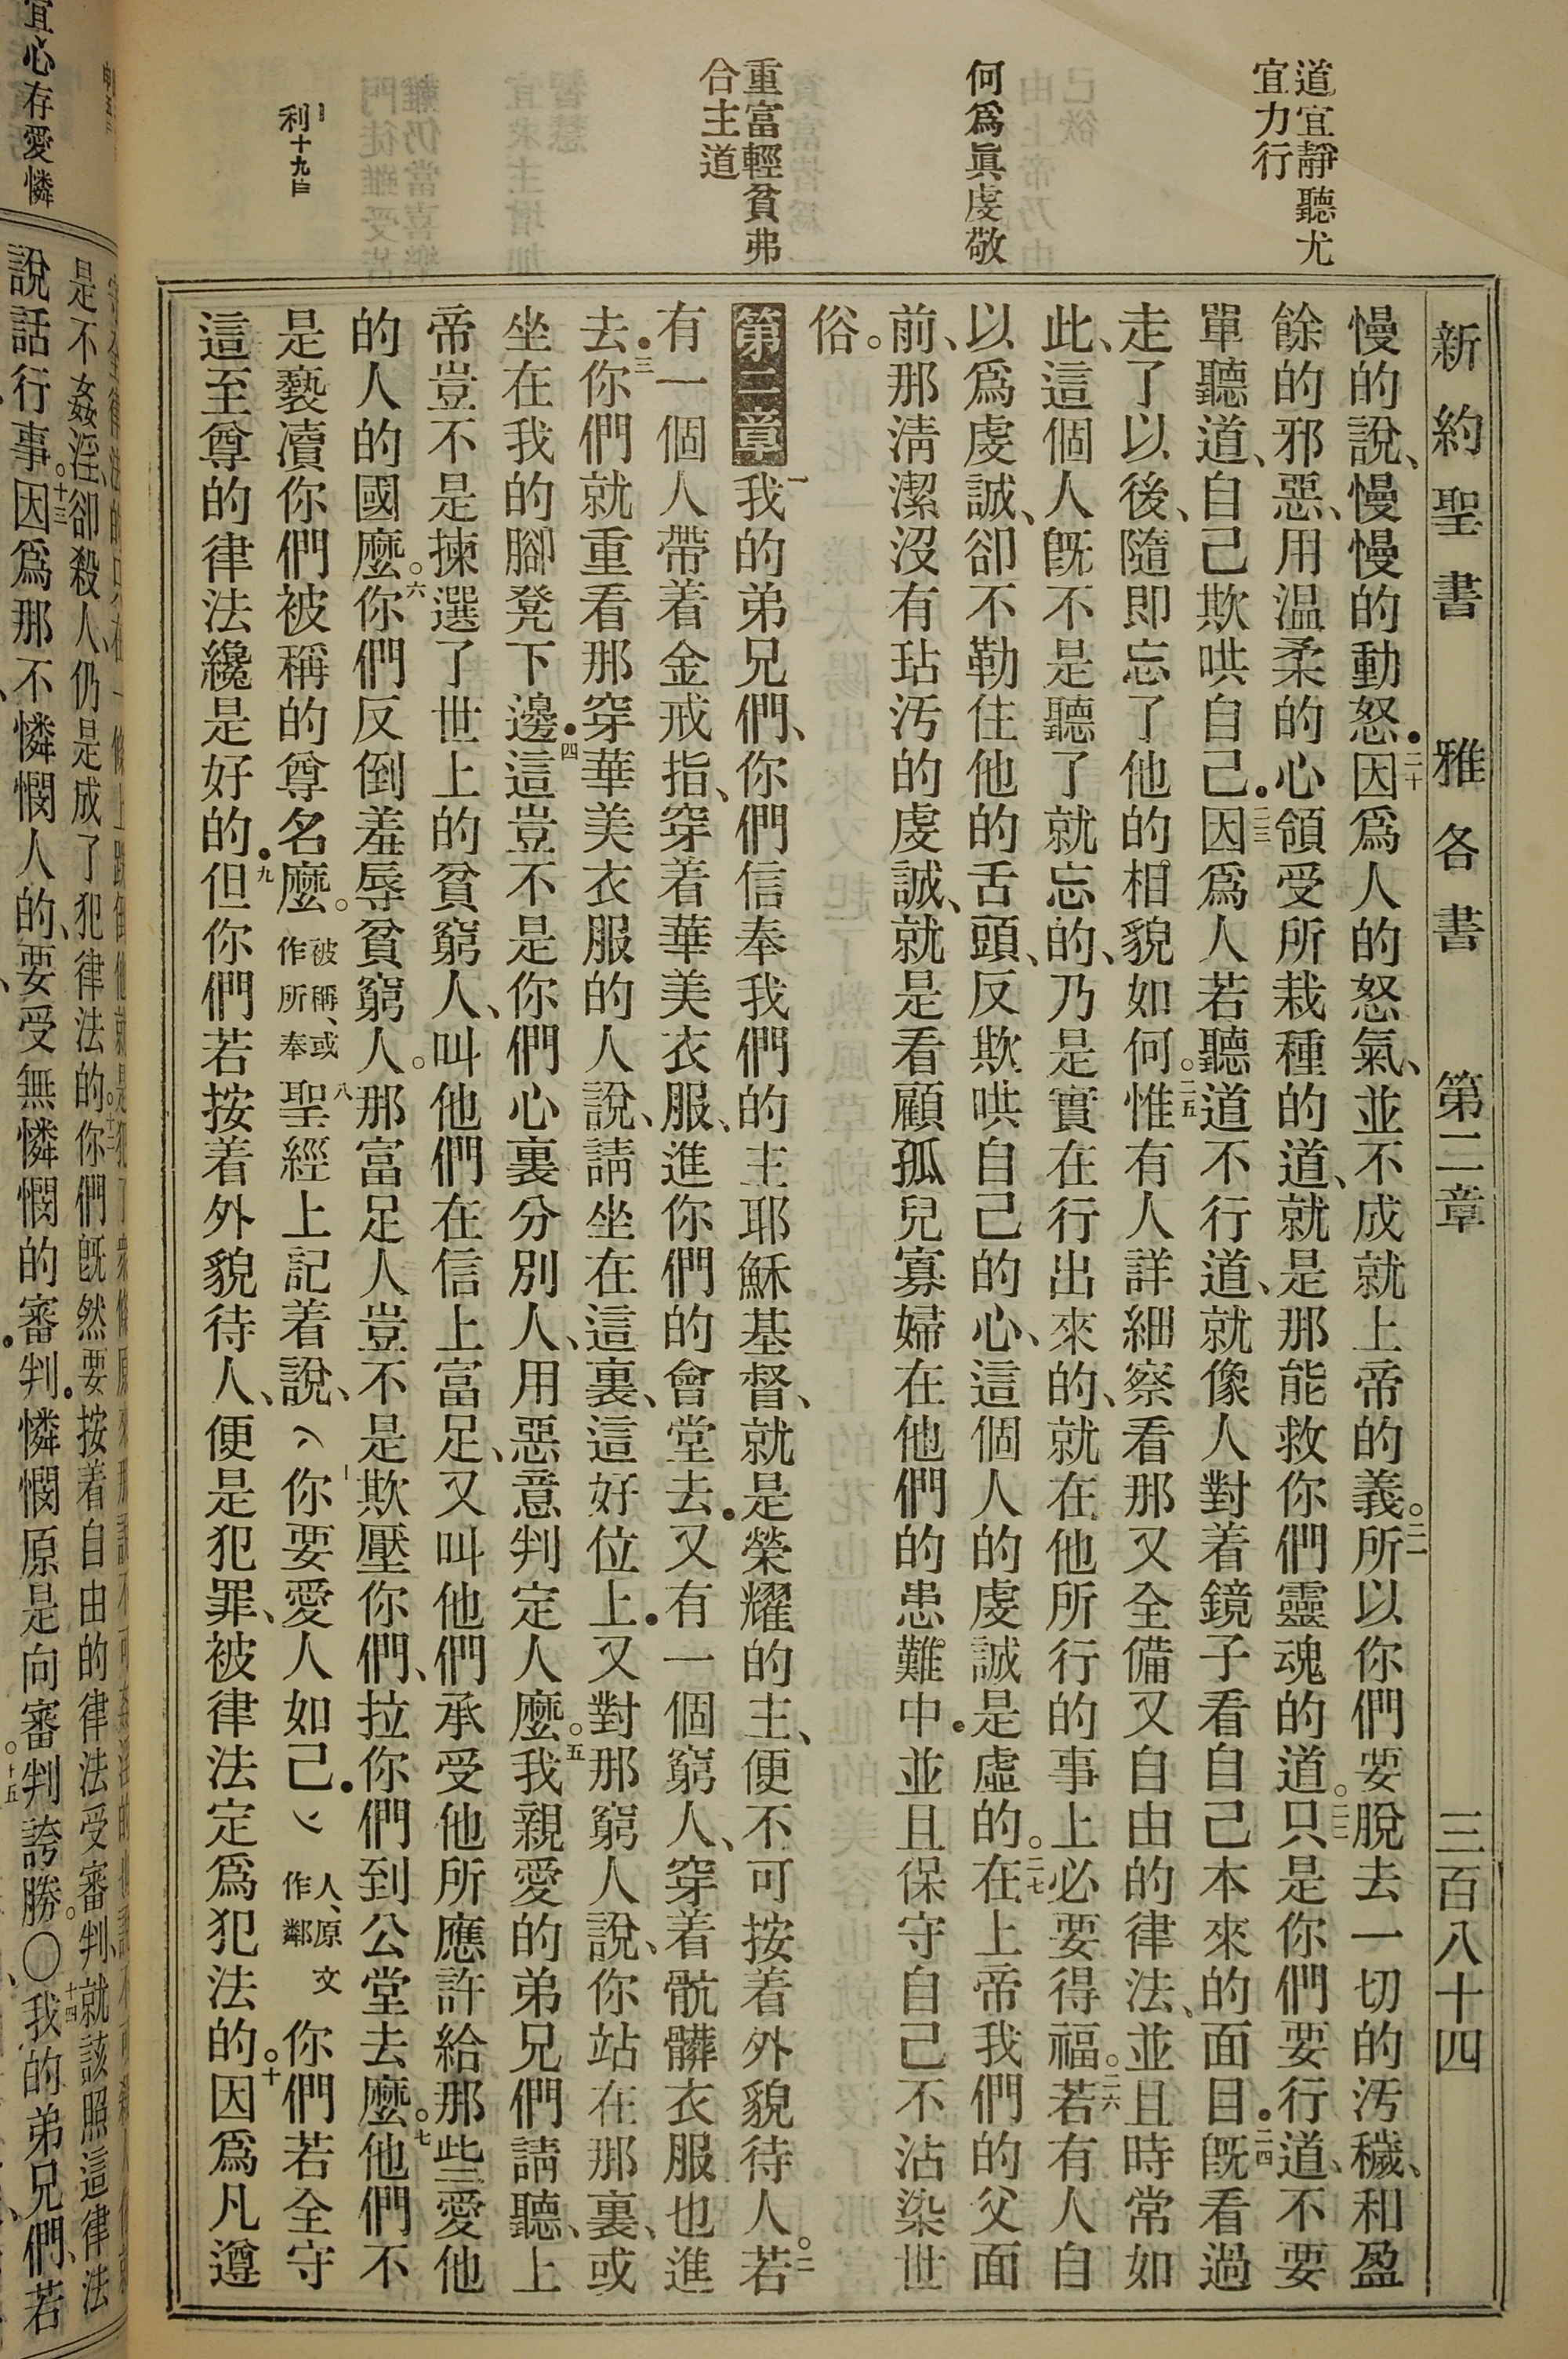 新約聖書 雅各書 第二章 三百八十四
道宜靜聽尤
宜力行
何爲眞虔敬
重富輕貧弗
合主道
利十九
慢的說、慢慢的動怒．二十因爲人的怒氣、並不成就上帝的義。二一所以你們要脫去一切的汚穢、和盈
餘的邪惡、用温柔的心領受所栽種的道、就是那能救你們靈魂的道。二二只是你們要行道、不要
單聽道、自己欺哄自己．二三因爲人若聽道不行道、就像人對着鏡子看自己本來的面目．二四旣看過
走了以後、隨即忘了他的相貌如何。二五惟有人詳細察看那又全備又自由的律法、並且時常如
此、這個人旣不是聽了就忘的、乃是實在行出來的、就在他所行的事上必要得福。二六若有人自
以爲虔誠、卻不勒住他的舌頭、反欺哄自己的心、這個人的虔誠是虛的。二七在上帝我們的父面
前、那淸潔沒有玷汚的虔誠、就是看顧孤兒寡婦在他們的患難中．並且保守自己不沾染世
俗。
第二章 一我的弟兄們、你們信奉我們的主耶穌基督、就是榮耀的主、便不可按着外貌待人。二若
有一個人帶着金戒指、穿着華美衣服、進你們的會堂去．又有一個窮人、穿着骯髒衣服也進
去．三你們就重看那穿華美衣服的人說、請坐在這裏、這好位上．又對那窮人說、你站在那裏、或
坐在我的腳凳下邊．四這豈不是你們心裏分別人、用惡意判定人麼。五我親愛的弟兄們請聽、上
帝豈不是揀選了世上的貧窮人、叫他們在信上富足、又叫他們承受他所應許給那些愛他
的人的國麼。六你們反倒羞辱貧窮人。那富足人豈不是欺壓你們、拉你們到公堂去麼。七他們不
是褻瀆你們被稱的尊名麼。被稱、或作所奉 八聖經上記着說、你要愛人如己．人、原文作鄰 你們若全守
這至尊的律法纔是好的．九但你們若按着外貌待人、便是犯罪、被律法定爲犯法的。十因爲凡遵
宜心存愛憐
是不姦淫、卻殺人、仍是成了犯律法的。十二你們旣然要按着自由的律法受審判、就該照這律法
說話行事。十三因爲那不憐憫人的、要受無憐憫的審判．憐憫原是向審判誇勝。〇十四我的弟兄們、若